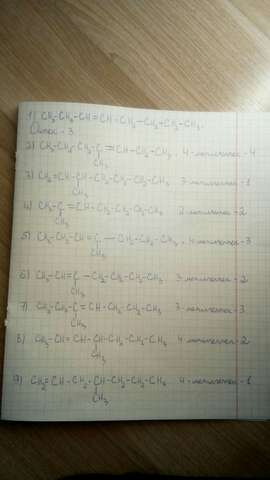 1) CH₃-CH₂-CH=CH-CH₂-CH₂-CH₂-CH₃.
Октен-3
2) CH₃-CH₂-CH₂-C=CH-CH₂-CH₃. 4-метилгептен-4
CH₃
3) CH₂=CH-CH-CH₂-CH₂-CH₂-CH₃ 3-метилгептен-1
CH₃
4) CH₃-C=CH-CH₂-CH₂-CH₂-CH₃ 2-метилгептен-2
CH₃
5) CH₃-CH₂-CH=C-CH₂-CH₂-CH₃. 4-метилгептен-3
CH₃
6) CH₃-CH=C-CH₂-CH₂-CH₂-CH₃ 3-метилгептен-2
CH₃
7) CH₃-CH₂-C=CH-CH₂-CH₂-CH₃ 3-метилгептен-3
CH₃
8) CH₃-CH=CH-CH-CH₂-CH₂-CH₃ 4-метилгептен-2
CH₃
9) CH₂=CH-CH₂-CH-CH₂-CH₂-CH₃ 4-метилгептен-1
CH₃